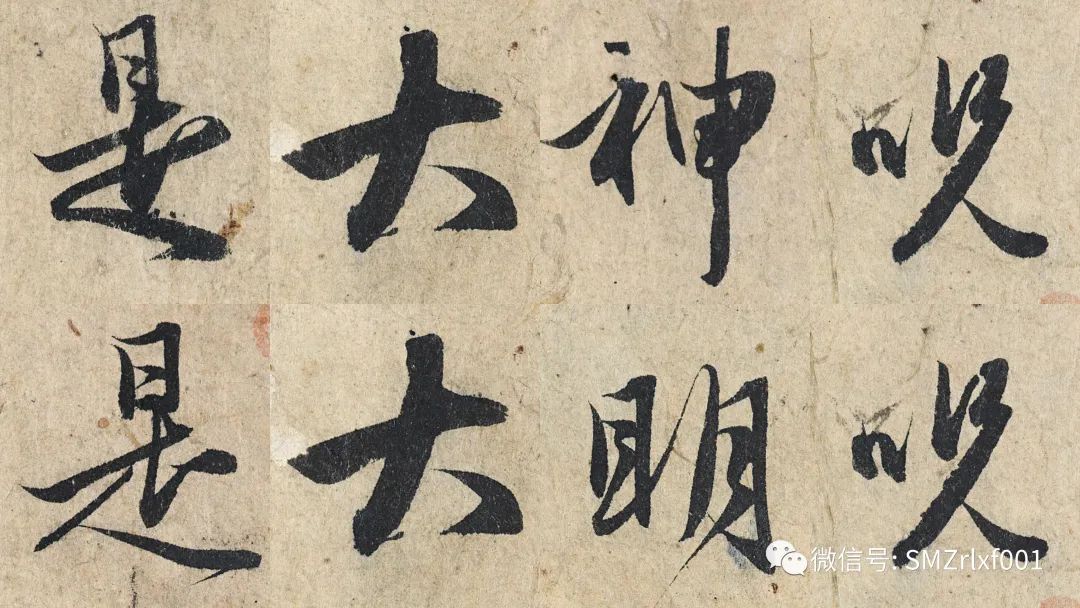 是大神咒
是大明咒
微信号: SMZrlxf001